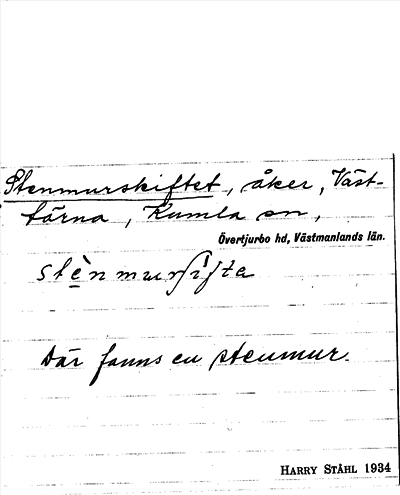 Stenmurskiftet, åker, Väst-
tärna, Kumla sn,
Övertjurbo hd, Västmanlands län.
Där fanns en stenmur.
HARRY STÅHL 1934